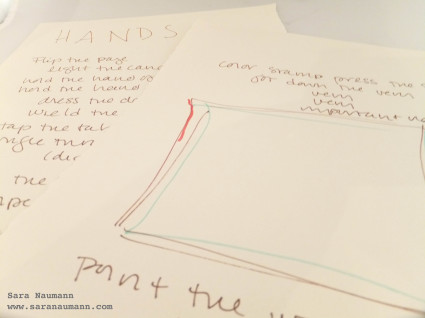 HANDS
flip the page
right the cand
hold the hand of
hold the hand
dress the dr
wield the
tap the tab
ngle thin
(der
the
ape
color stamp press the
jot down the vein
vein
vein
important ve
paint the
Sara Naumann
www.saranaumann.com